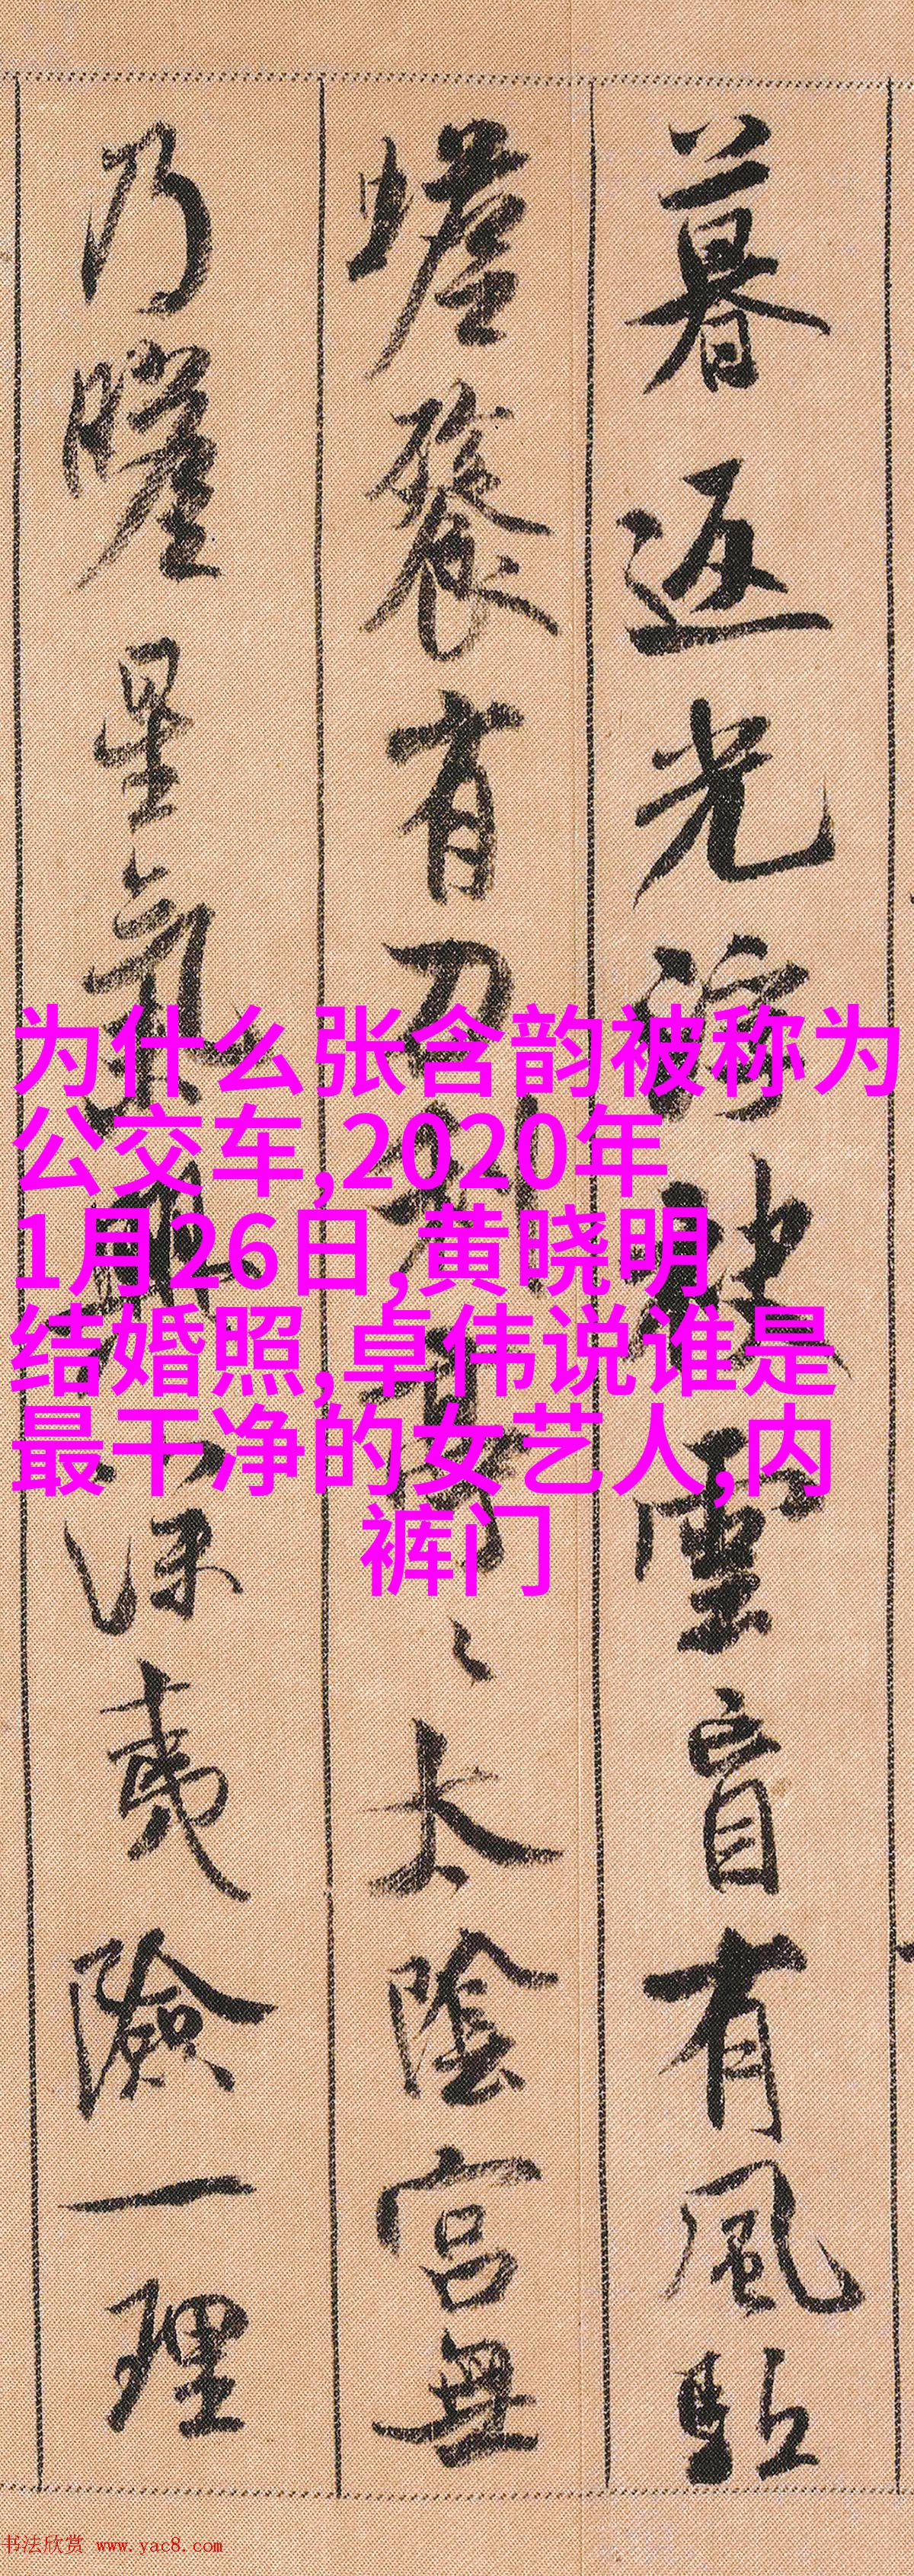 暮返光浮袂雲盲有風點
燈發有刀
太陰宮無
乃瞠星氣
深夷險一理
为什么张含韵被称为
公交车,2020年
1月26日,黄晓明
结婚照,卓伟说谁是
最干净的女艺人,内
裤门
书法欣赏 www.yac8.com